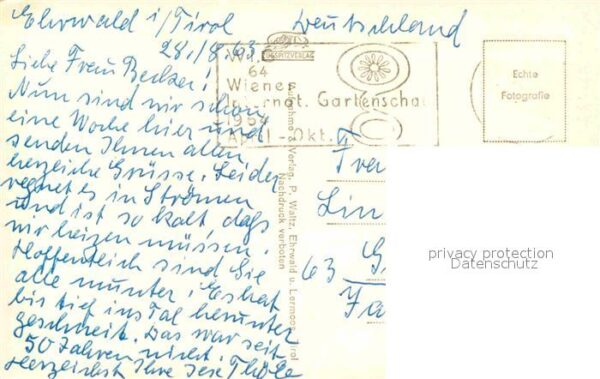 Ehrwald i/Tirol
28./8.63
Liebe Frau Becker!
Nun sind wir schon
eine Woche hier und
senden Ihnen allen
herzliche Grüsse. Leider
regnet es in Strömen
und ist so kalt daß
wir heizen müssen.
Hoffentlich sind Sie
alle munter! Es hat
bis tief ins Tal herunter
geschneit. Das war seit
50 Jahren nicht.
Herzlichst Ihre
Deutschland
64
Wiener
Internat. Gartenschau
1964
April - Okt.
Verlag P. Waltz, Ehrwald u. Lermoos, Tirol
Nachdruck verboten
Echte
Fotografie
Frau
Lin
63
privacy protection
Datenschutz